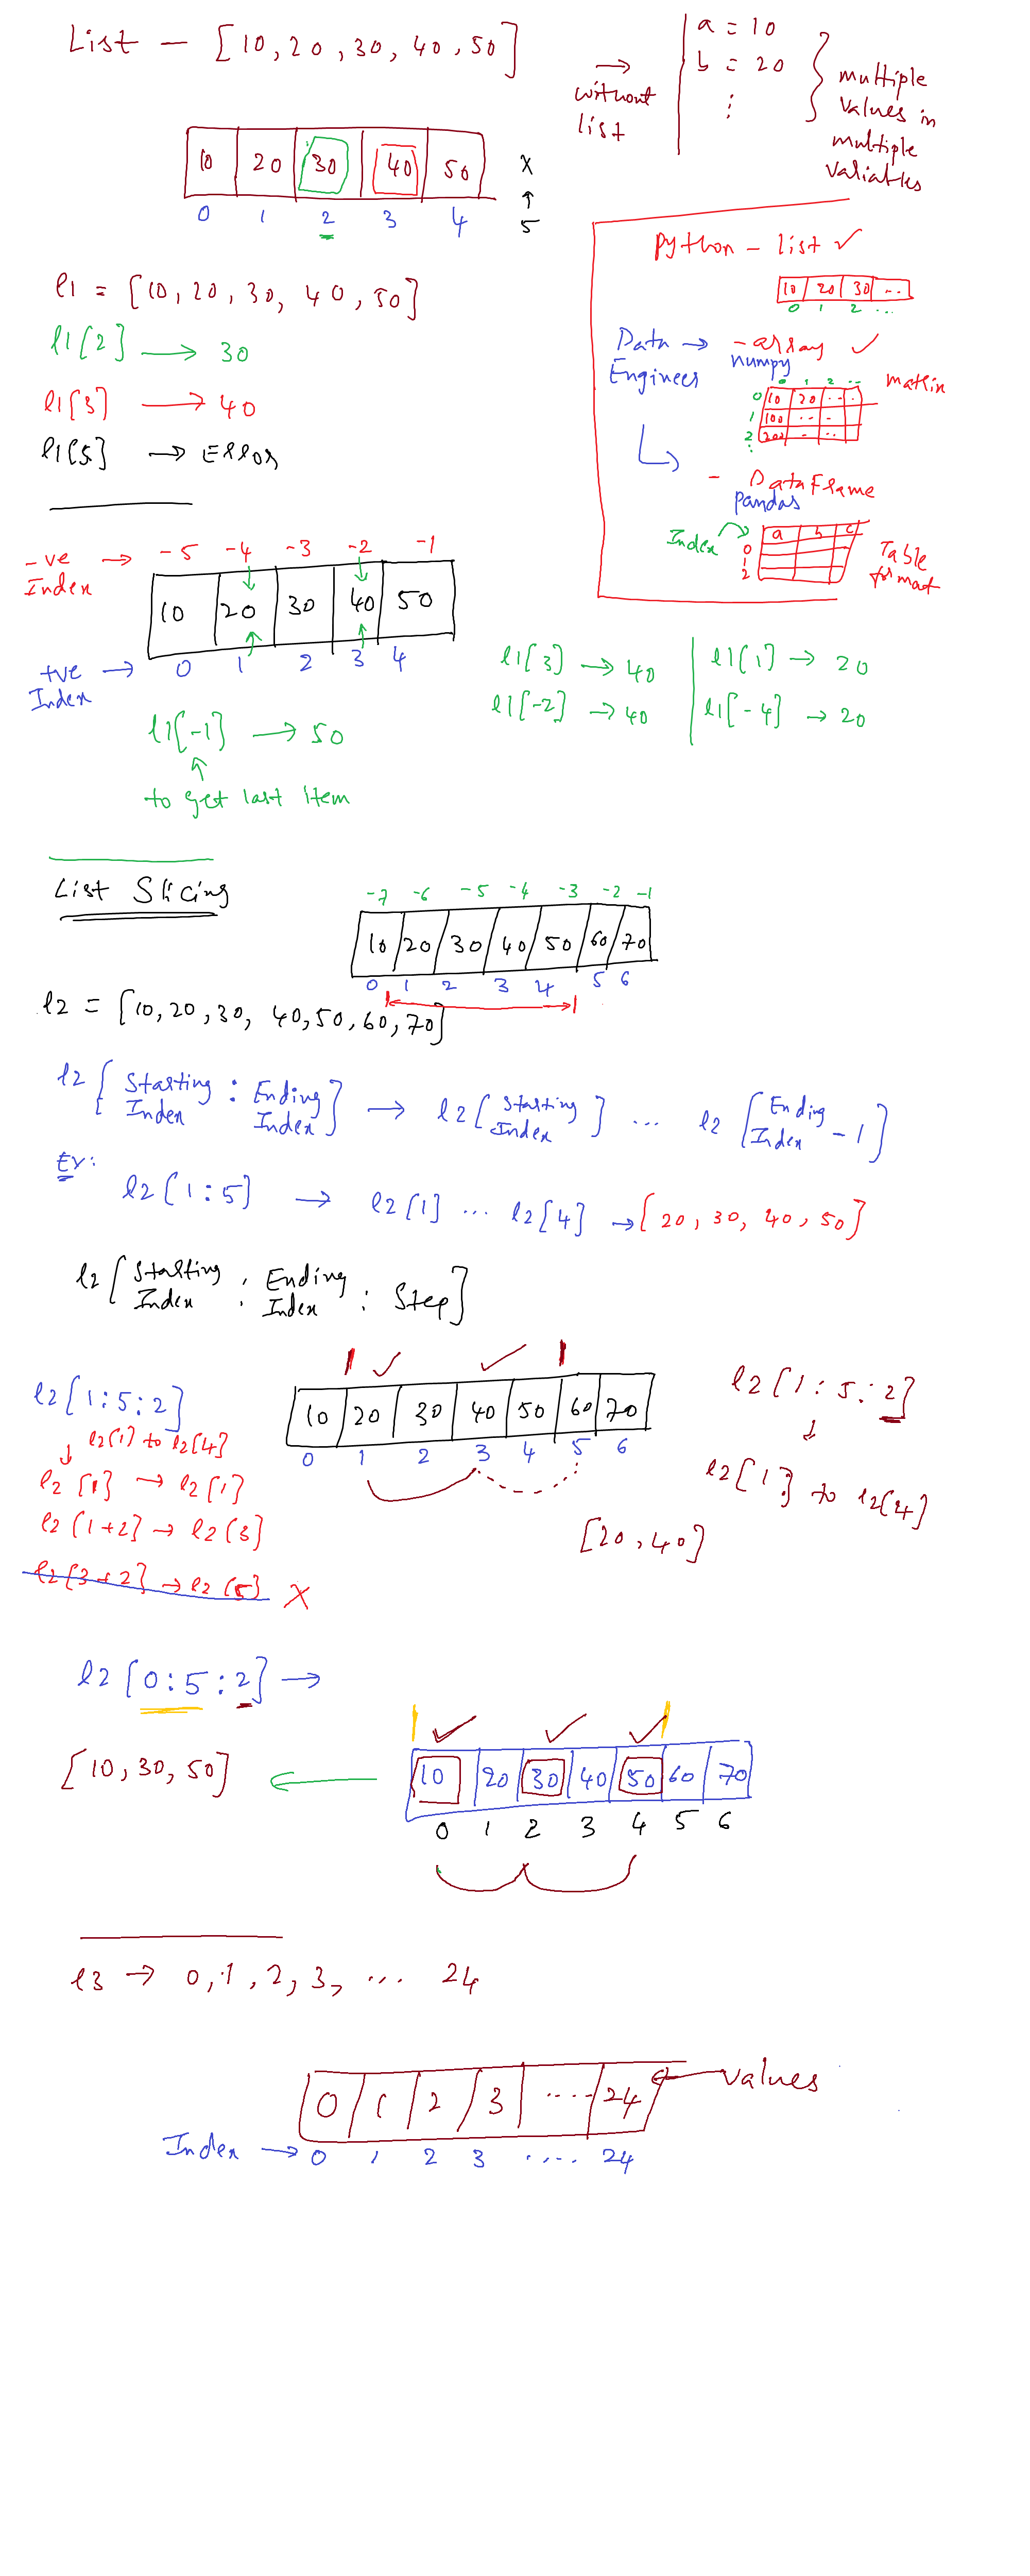 List - [10, 20, 30, 40, 50]
→ without list
a = 10
b = 20
⋮
multiple values in multiple variables
10 20 30 40 50 x
0 1 2 3 4 ↑ 5
l1 = [10, 20, 30, 40, 50]
l1[2] → 30
l1[3] → 40
l1[5] → Error
python - list ✓
10 20 30 ..
0 1 2 ...
Data Engineers → - array ✓
numpy
0 1 2 ..
0 10 20 .. .
1 100 .. -
2 200 - ..
:
matrix
- DataFrame
pandas
Index
a b c
0
1
2
Table format
-ve Index → -5 -4 -3 -2 -1
10 20 30 40 50
+ve Index → 0 1 2 3 4
l1[3] → 40
l1[-2] → 40
l1[1] → 20
l1[-4] → 20
l1[-1] → 50
↑
to get last item
List Slicing
-7 -6 -5 -4 -3 -2 -1
10 20 30 40 50 60 70
0 1 2 3 4 5 6
l2 = [10, 20, 30, 40, 50, 60, 70]
l2 [Starting Index : Ending Index] → l2 [Starting Index] ... l2 [Ending Index - 1]
Ex:
l2 [1:5] → l2[1] ... l2[4] → [20, 30, 40, 50]
l2 [Starting Index : Ending Index : Step]
l2[1:5:2]
↓ l2[1] to l2[4]
l2 [1] → l2[1]
l2 [1+2] → l2[3]
l2[3+2] → l2[5] X
10 20 30 40 50 60 70
0 1 2 3 4 5 6
[20, 40]
l2[1:5:2]
↓
l2[1] to l2[4]
l2 [0:5:2] →
[10, 30, 50] ←
10 20 30 40 50 60 70
0 1 2 3 4 5 6
l3 → 0, 1, 2, 3, ... 24
0 1 2 3 .... 24 ← values
Index → 0 1 2 3 .... 24